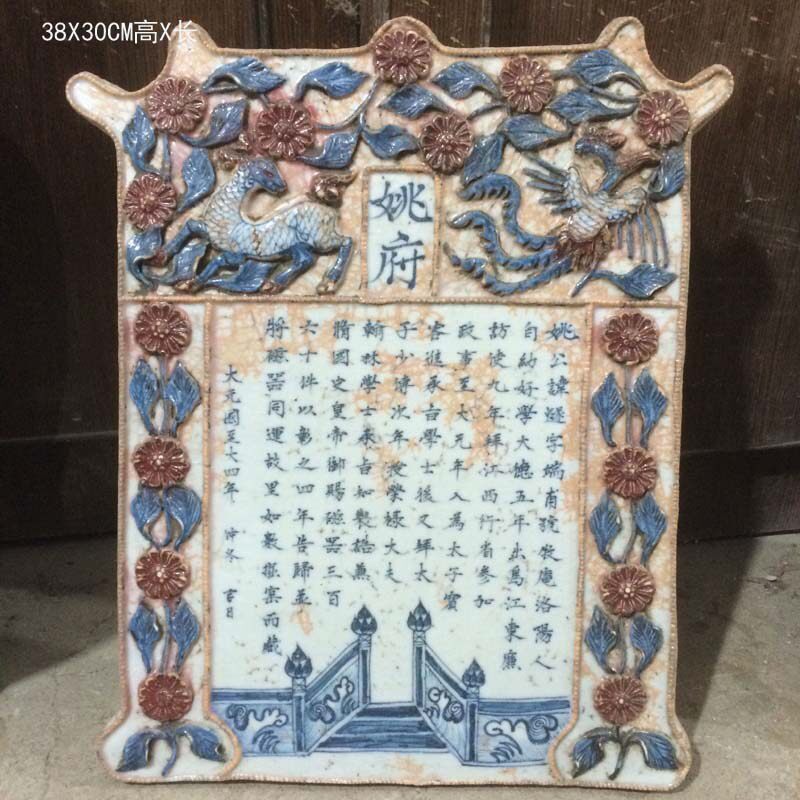 38X30CM高X长
姚府
姚公諱燧字端甫號牧庵洛陽人
自幼好學大德五年出為江東廉
訪使九年拜江西行省參知
政事至大元年入為太子賓
客進承旨學士後又拜太
子少傅次年授榮祿大夫
翰林學士承旨知製誥兼
脩國史皇帝御賜磁器三百
六十件以彰之四年告歸並
將磁器同運故里如數窯而藏
大元國至大四年 仲冬 吉日